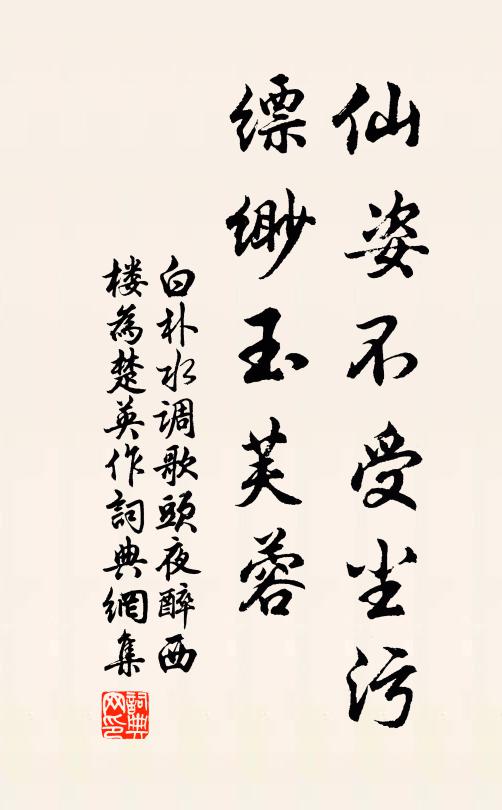 仙姿不受尘污
缥缈玉芙蓉
白朴水调歌頭夜醉西
楼為楚英作詞典網集
詞典
网印